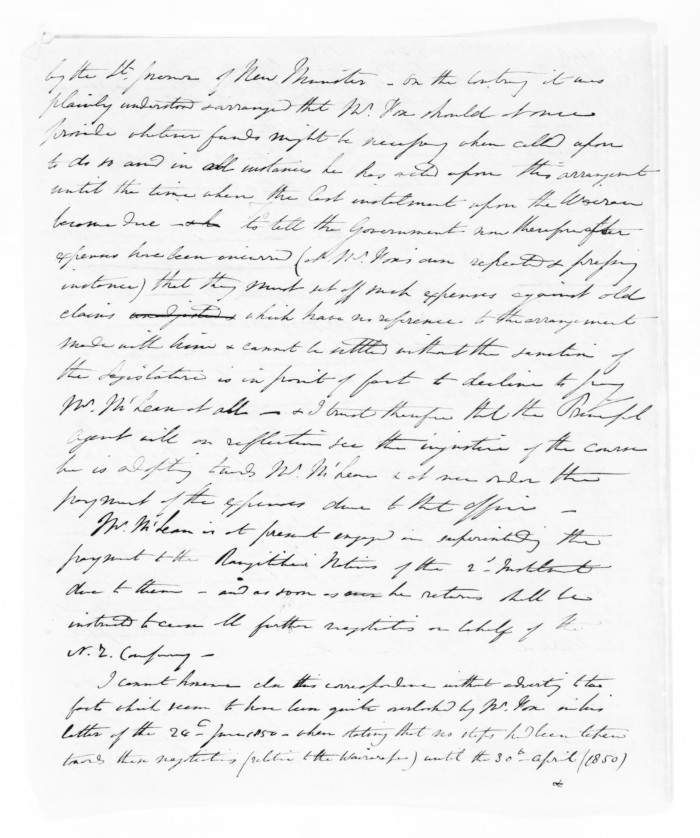 by the Lt. Governor of New Munster – on the contrary it was
plainly understood & arranged that Mr. Fox should at once
provide whatever funds might be necessary when called upon
to do so and in all instances he has acted upon this arrangement
until the time when the last instalment upon the
became due – to tell the Government now therefore after
expenses have been incurred (at Mr. Fox's own repeated & pressing
instance) that they must set off such expenses against old
claims unadjusted & which have no reference to the arrangement
made with him & cannot be settled without the sanction of
the Legislature is in point of fact to decline to pay
Mr. McLean at all – & I trust therefore that the Principal
Agent will on reflection see the injustice of the course
he is adopting towards Mr. McLean & at once order the
payment of the expenses due to that officer –
Mr. McLean is at present engaged in superintending the
payment to the Rangitikei Natives of the 2d. Instalment
due to them – and as soon as he returns shall be
instructed to cease all further negotiations on behalf of the
N.Z. Company –
I cannot however close this correspondence without adverting to two
facts which seem to have been quite overlooked by Mr. Fox in his
letter of the 24th June 1850 – when stating that no steps had been taken
towards these negotiations (relative to the Wairarapa) until the 30th April (1850)
&